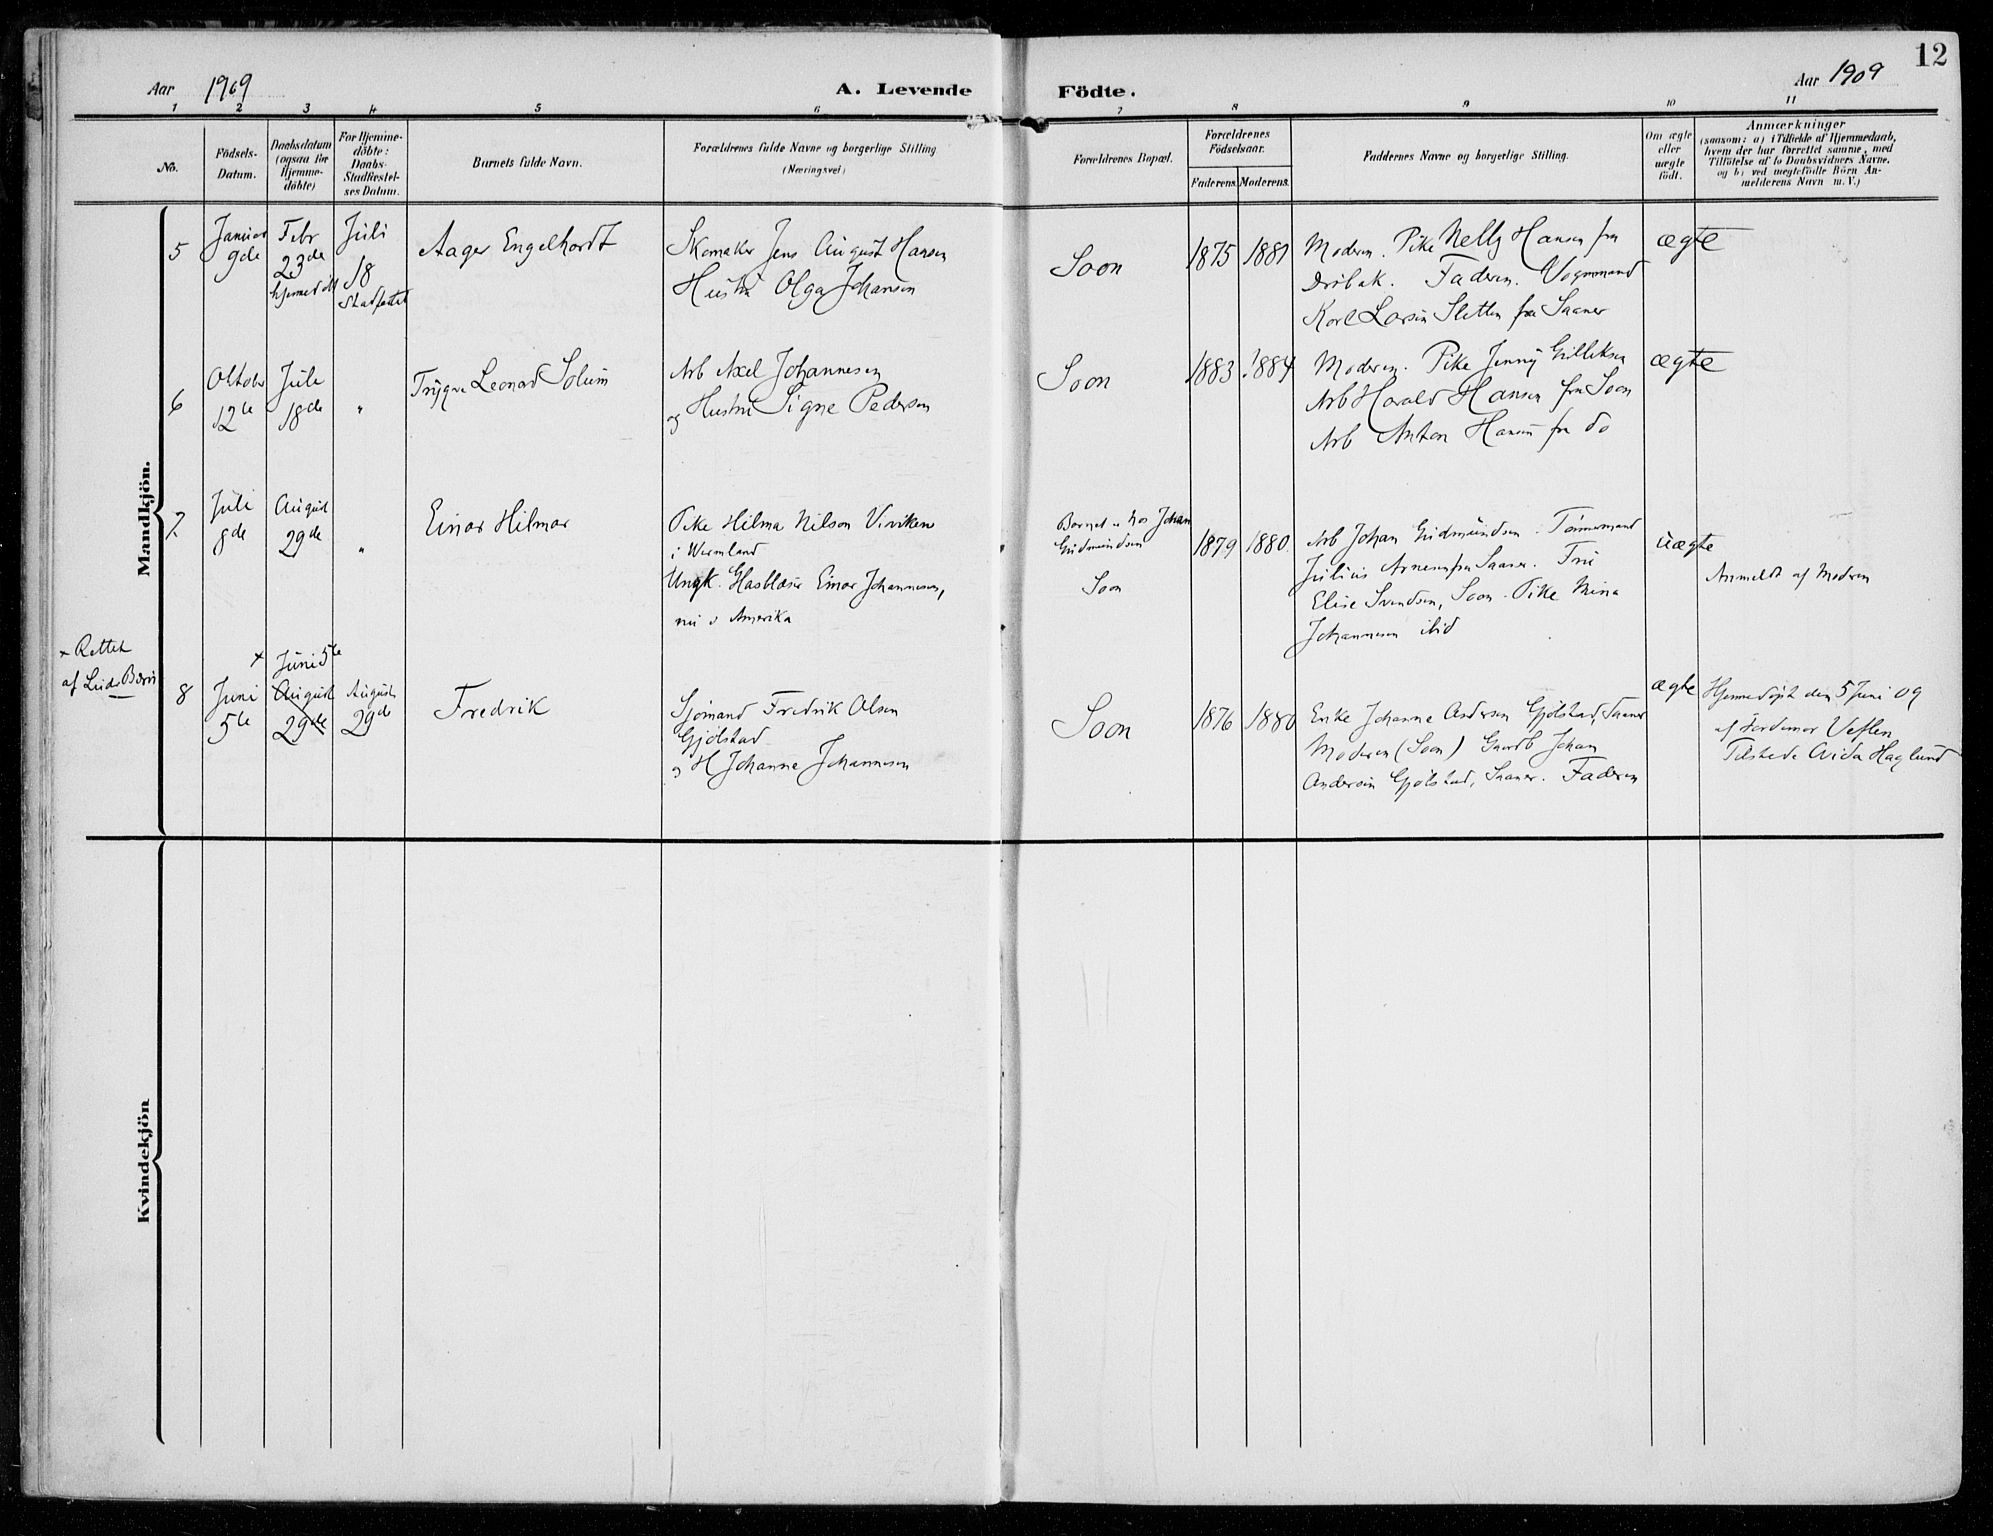 12
Aar 1909
A. Levende Födte.
Aar 1909
1 2 3 4 5 6 7 8 9 10 11
No.
Födsels-
Datum.
Daabsdatum
(ogsaa for
Hjemme-
döbte)
For Hjemme-
döbte:
Daabs-
Stadfæstel-
ses Datum.
Barnets fulde Navn.
Forældrenes fulde Navne og borgerlige Stilling
(Næringsvei)
Forældrenes Bopæl.
Forældrenes
Födselsaar.
Faderens. Moderens.
Faddernes Navne og borgerlige Stilling.
Om ægte
eller
uægte
födt.
Anmærkninger
(saasom: a) i Tilfælde af Hjemmedaab,
hvem der har forrettet samme, med
Tilföielse af to Daabsvidners Navne.
og b) ved uægtefödte Börn An-
melderens Navn m. V.)
Mandkjön.
5
Januar
9de
Febr
23de
hjemmedøbt
Juli
18
Stadfæstet
Aager Engelhardt
Skomaker Jens August Hansen
Hustru Olga Johansen
Soon
1875
1881
Moderen. Pike Nelly Hansen fra
Drøbak. Faderen. Vognmand
Karl Larsen Sletten fra Saaner
ægte
6
Oktober
12te
Juli
18de
"
Trygve Leonard Solum
Arb Axel Johannesen
og Hustru Signe Pedersen
Soon
1883
1884
Moderen. Pike Jenny Gulliksen
Arb Harald Hansen fra Soon
Arb Anton Hansen fra do
ægte
7
Juli
8de
August
29de
"
Einar Hilmar
Pike Hilma Nilson Viviken
i Wermland
Ungk. Glasblæser Einar Johannesen,
nu i Amerika
Barnet er hos Johan
Gudmundsen
Soon
1879
1880.
Arb Johan Gudmundsen. Tømmermand
Julius Arnesen fra Saaner. Fru
Elise Svendsen, Soon. Pike Mina
Johannesen ibid
uægte
Anmeldt af Moderen
× Rettet
af
8
Juni
5te
× Juni 5te
August
29de
August
29de
Fredrik
Sjømand Fredrik Olsen
Gjølstad
og H Johanne Johannesen
Soon
1876
1880
Enke Johanne Andersen Gjølstad, Saaner
Moderen (Soon) Gaardb Johan
Andersen Gjølstad, Saaner. Faderen
ægte
Hjemmedøpt den 5 Juni 09
af Jordemor Veslen
Tilstede Avida Haglund
Kvindekjön